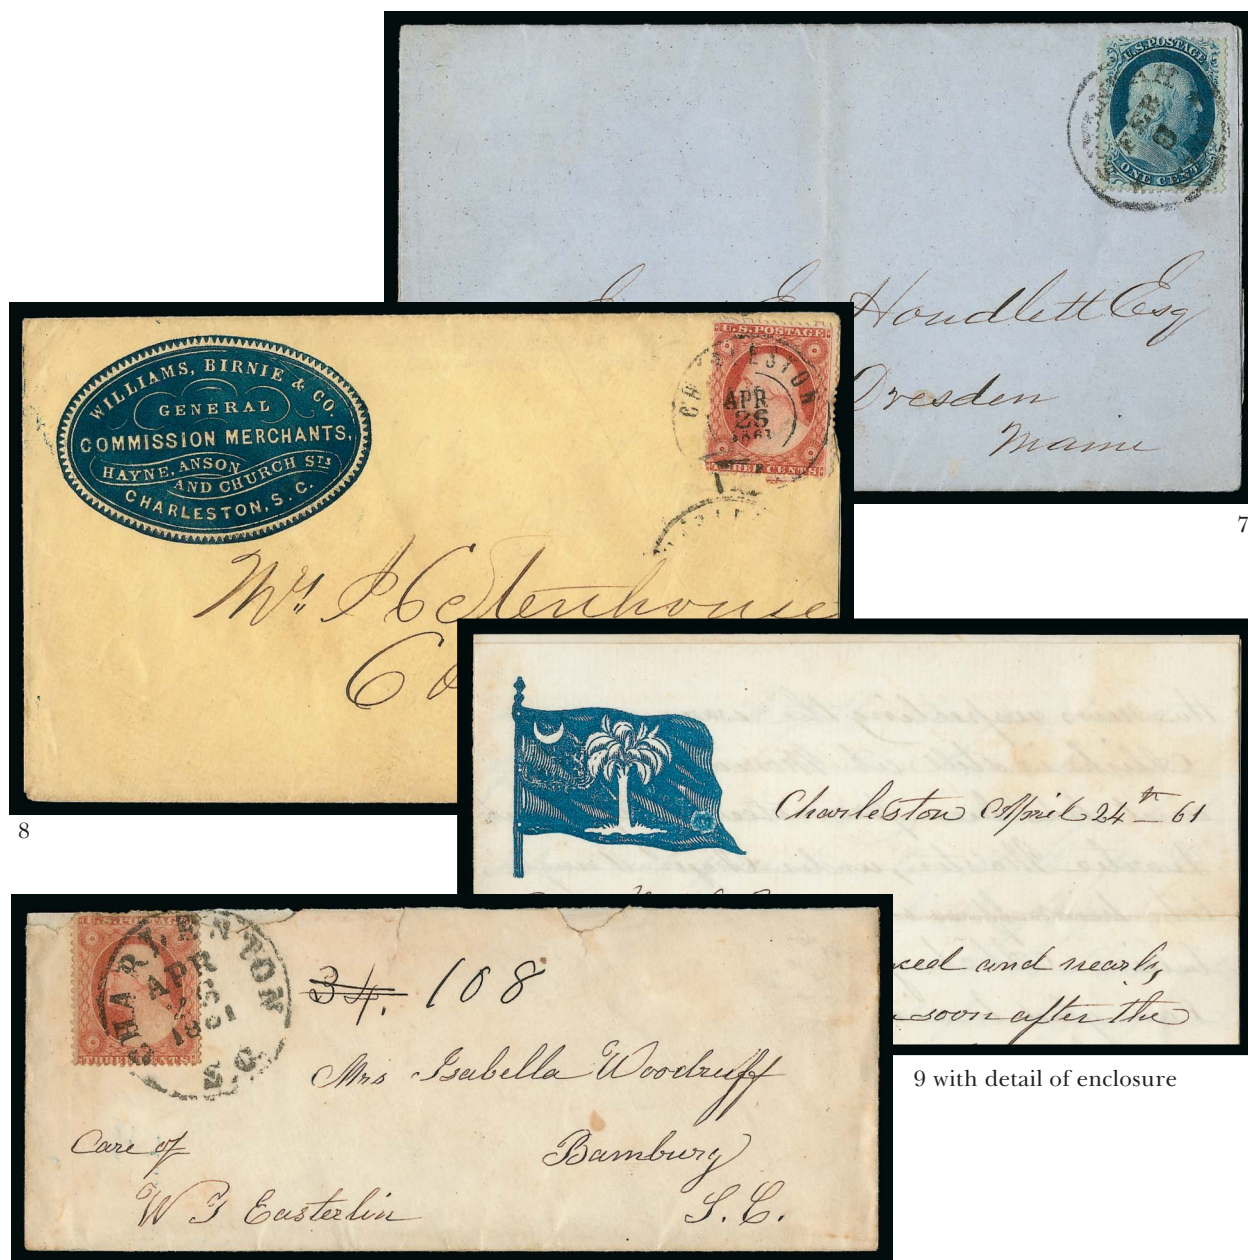 U.S. POSTAGE
ONE CENT
FEB
Houdlett Esq
Dresden
Maine
7
WILLIAMS, BIRNIE & CO.
GENERAL
COMMISSION MERCHANTS,
HAYNE, ANSON
AND CHURCH STS
CHARLESTON, S. C.
U.S. POSTAGE
CHARLESTON
APR
26
1861
CENTS
8
Charleston April 24th 61
and nearly
soon after the
9 with detail of enclosure
U.S. POSTAGE
THREE CENTS
CHARLESTON
APR
1861
S.C.
34. 108
Mrs Isabella Woodruff
Care of
Bamburg
W J Easterlin
S. C.